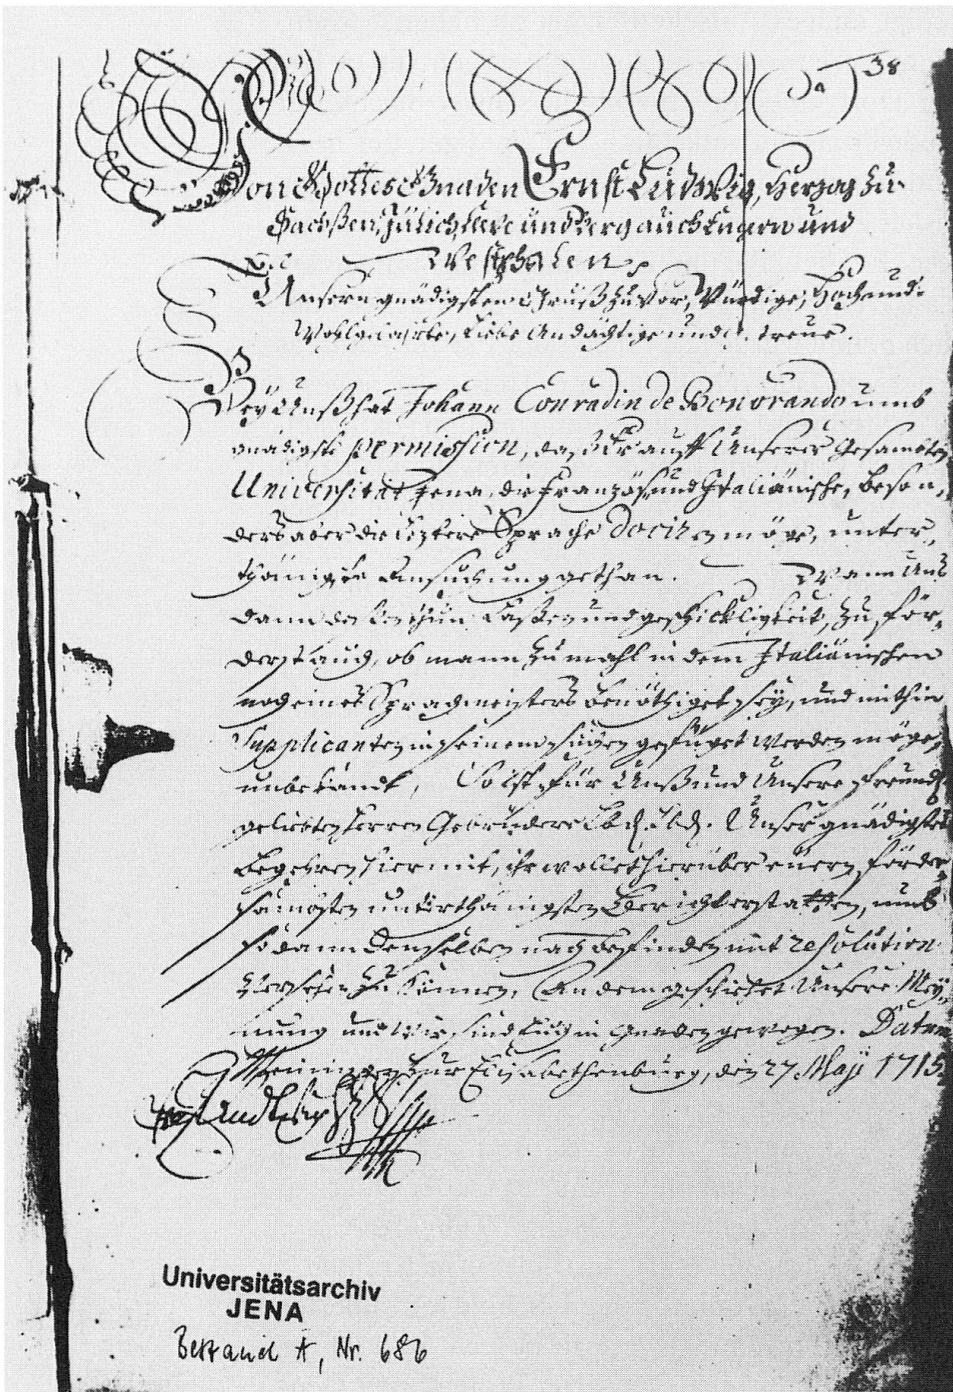 38
Von Gottes Gnaden Ernst Ludwig, Hertzog zu
Sachßen, Jülich, Cleve und Berg auch Engern und
Westphalen p.
Unsern gnädigsten Gruß zuvor, Würdige, Hoch und
Wohlgelahrte, Liebe Andächtige und treue.
Bey Unß hat Johann Conradin de Bonorando umb
gnädigste permission, daß Er auff Unserer Gesambten
Universität Jena, die Französ. und Italiänische, beson,
ders aber die leztere Sprache dociren möge, unter,
thänigste Ansuchung gethan. Wann Uns
dann deßen thun Laßen und geschickligkeit, zu för,
derst auch, ob mann zumahl in dem Italiänischen
noch eines Sprachmeisters benöthiget sey, und mithin
Supplicanten in seinem suchen gefüget werden möge,
unbekandt, So ist für Unß und Unsere freundl.
geliebten Herren Gebrüdere Lbd. Lbd. Unser gnädigstes
Begehren hiermit, ihr wollet hierüber euern förder,
samsten unterthänigsten Bericht erstatten, umb
sodann denselben nach befinden mit resolution
versehen zu können, An dem geschiehet Unsere Mey,
nung und Wir sind Euch in Gnaden gewogen. Datum
Meiningen zur Elisabethenburg, den 27 Maji 1715.
Universitätsarchiv
JENA
Bestand A, Nr. 686